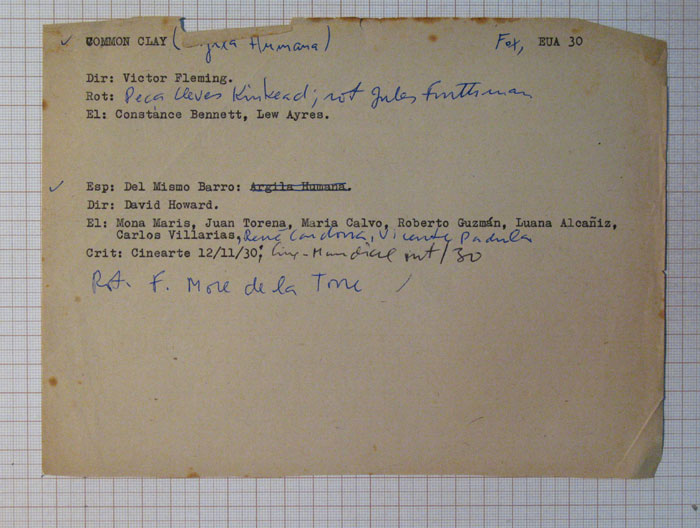 COMMON CLAY ( Humana) Fox, EUA 30
Dir: Victor Fleming.
Rot: Peça Cleves Kinkead; rot Jules Furthman
El: Constance Bennett, Lew Ayres.
Esp: Del Mismo Barro: Argila Humana.
Dir: David Howard.
El: Mona Maris, Juan Torena, Maria Calvo, Roberto Guzmán, Luana Alcañiz,
Carlos Villarias, René Cardona, Vicente Padula
Crit: Cinearte 12/11/30; Cine-Mundial out/30
Rot. F. More de la Torre